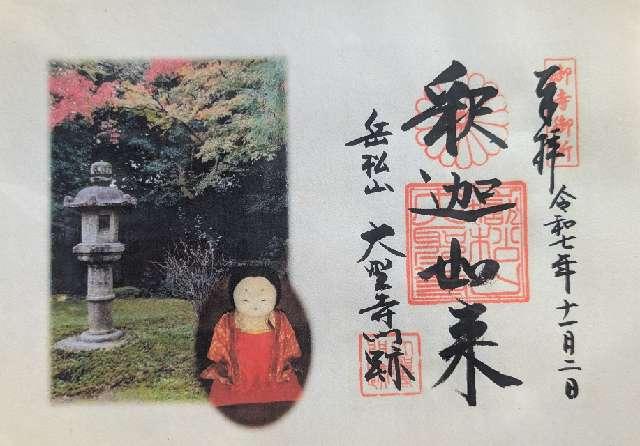 奉拝
令和七年十一月二日
御寺御所
釈迦如来
岳松山
大聖寺門跡